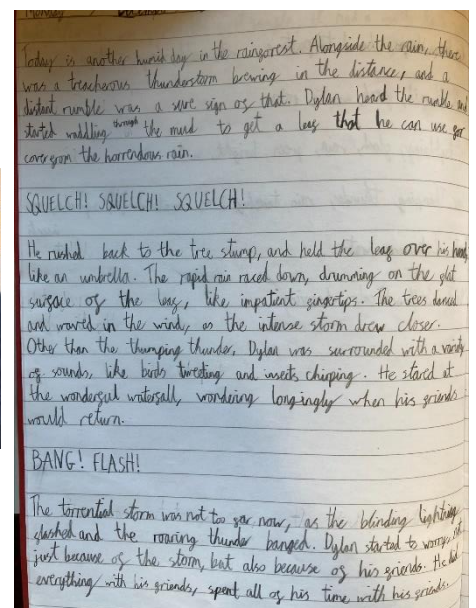 Monday
Today is another humid day in the rainforest. Alongside the rain, there
was a treacherous thunderstorm brewing in the distance, and a
distant rumble was a sure sign of that. Dylan heard the rumble and
started waddling through the mud to get a leaf that he can use for
cover from the horrendous rain.
SQUELCH! SQUELCH! SQUELCH!
He rushed back to the tree stump, and held the leaf over his head,
like an umbrella. The rapid rain raced down, drumming on the flat
surface of the leaf, like impatient fingertips. The trees danced
and waved in the wind, as the intense storm drew closer.
Other than the thumping thunder, Dylan was surrounded with a variety
of sounds, like birds tweeting and insects chirping. He stared at
the wonderful waterfall, wondering longingly when his friends
would return.
BANG! FLASH!
The torrential storm was not too far now, as the blinding lightning
flashed and the roaring thunder banged. Dylan started to worry, not
just because of the storm, but also because of his friends. He had
everything with his friends, spent all of his time with his friends.